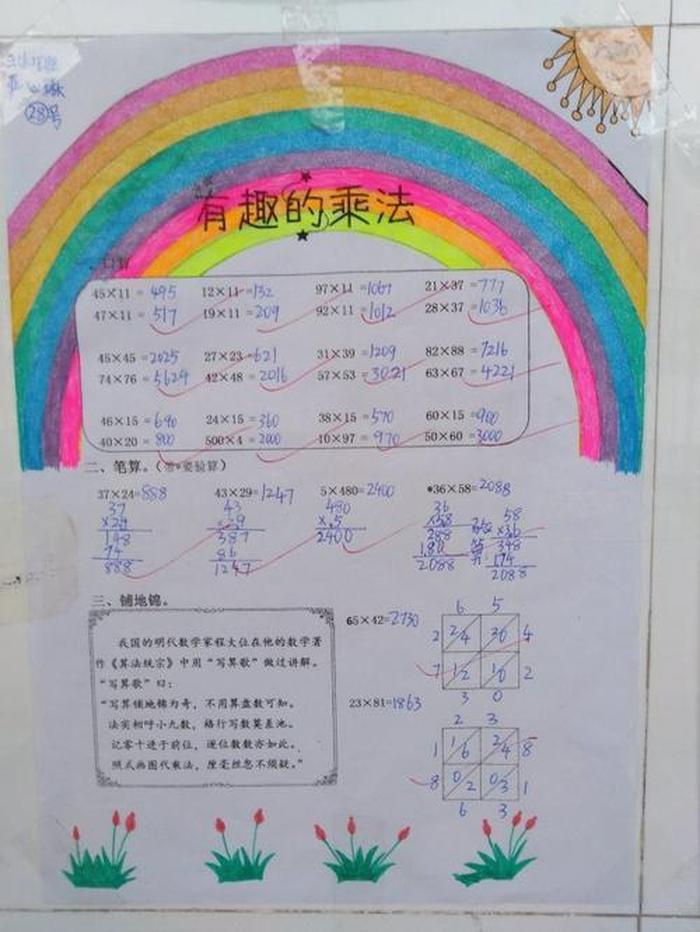 28号
有趣的乘法
一、口算
45×11=495 12×11=132 97×11=1067 21×37=777
47×11=517 19×11=209 92×11=1012 28×37=1036
45×45=2025 27×23=621 31×39=1209 82×88=7216
74×76=5624 42×48=2016 57×53=3021 63×67=4221
46×15=690 24×15=360 38×15=570 60×15=900
40×20=800 500×4=2000 10×97=970 50×60=3000
二、笔算。(带*要验算)
37×24=888 43×29=1247 5×480=2400 *36×58=2088
37 43 480 36 58
×24 ×29 ×5 ×58 ×36
148 387 2400 288 验算 348
74 86 180 174
888 1247 2088 2088
三、铺地锦。
我国的明代数学家程大位在他的数学著
作《算法统宗》中用“写算歌”做过讲解。
“写算歌”曰:
“写算铺地锦为奇,不用算盘数可知。
法实相呼小九数,格行写数莫差池。
记零十进于前位,逐位数数亦如此。
照式画图代乘法,厘毫丝忽不须疑。”
65×42=2730
6 5
2 2/4 3/0 4
7 1/2 1/0 2
3 0
23×81=1863
2 3
1 1/6 2/4 8
8 0/2 0/3 1
6 3